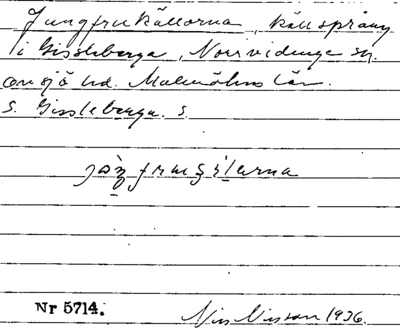 Jungfrukällorna, källsprång
i Gissleberga, Norrvidinge sn.
Onsjö hd. Malmöhus län.
S. Gissleberga. S.
Nr 5714.
Nils Nilsson 1936.